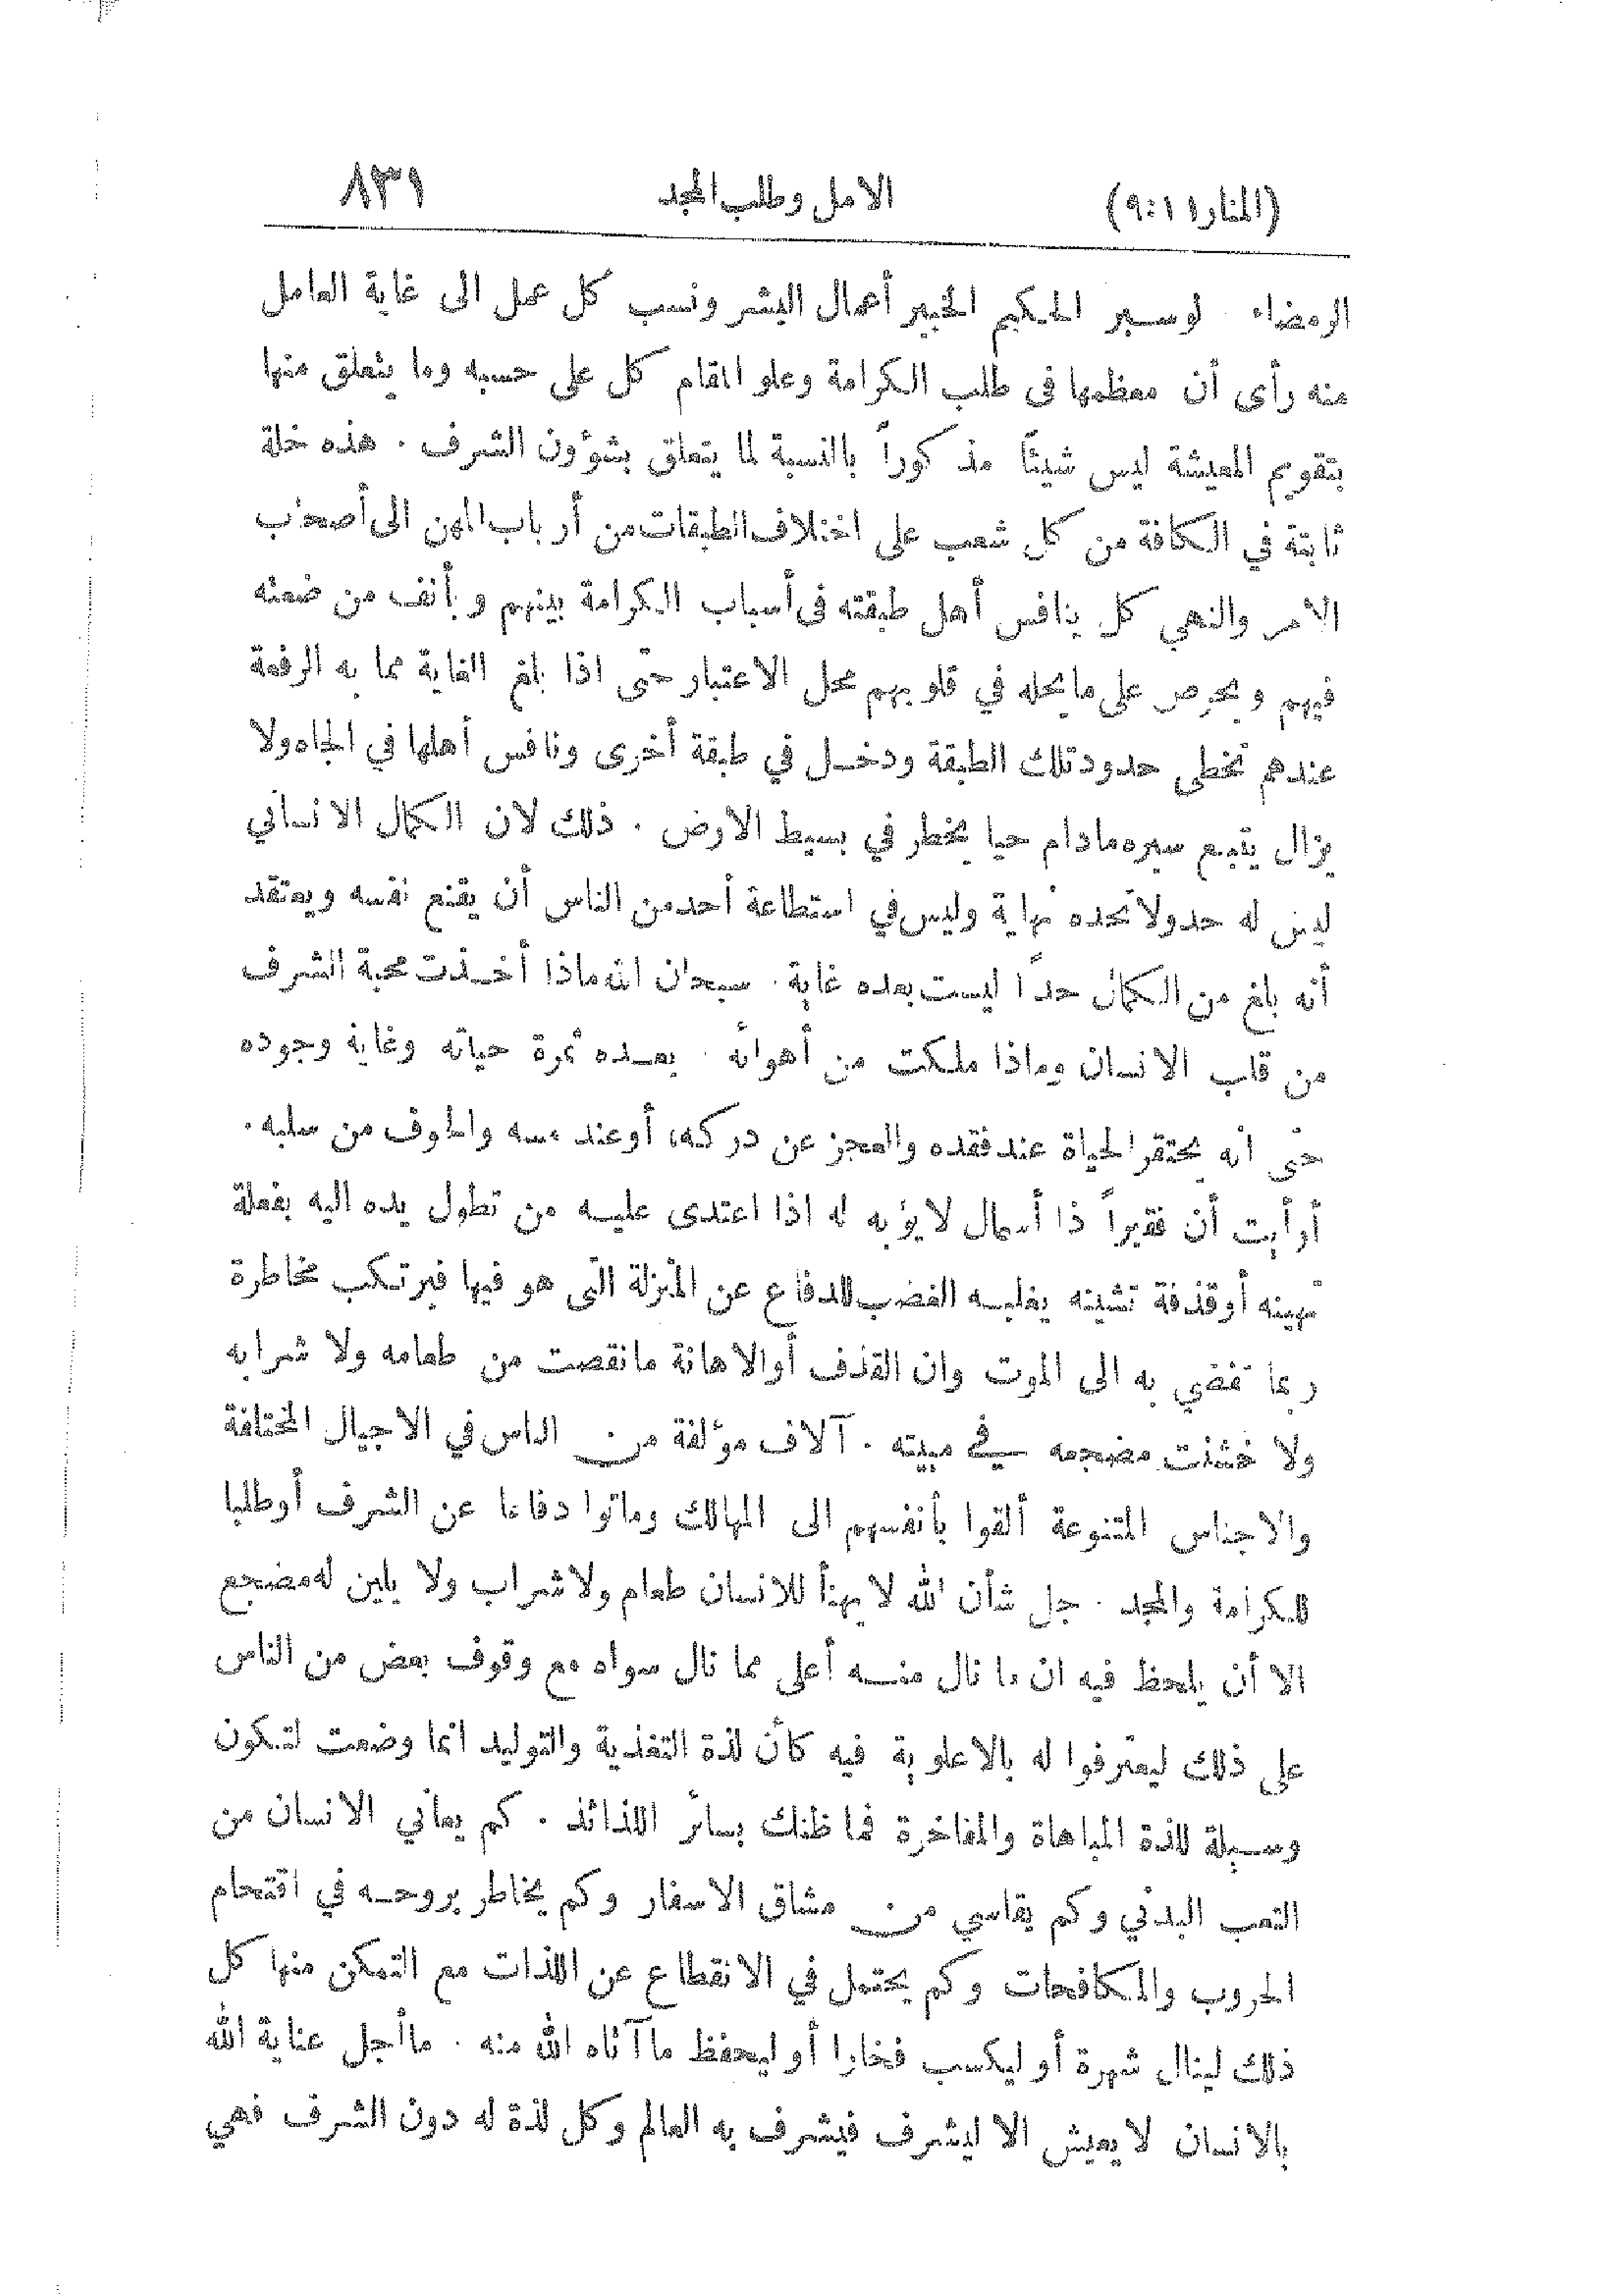 (المنار ١١ : ٩) الامل وطلب المجد ٨٣١
الرمضاء . لو سبر الحكيم الخبير أعمال البشر ونسب كل عمل الى غاية العامل
منه رأى أن معظمها في طلب الكرامة وعلو المقام كل على حسبه وما يتعلق منها
بتقويم المعيشة ليس شيئًا مذكوراً بالنسبة لما يتعلق بشؤون الشرف . هذه خلة
ثابتة في الكافة من كل شعب على اختلاف الطبقات من أرباب المهن الى أصحاب
الامر والنهي كل ينافس أهل طبقته في أسباب الكرامة بينهم ويأنف من ضعته
فيهم ويحرص على ما يحله في قلوبهم محل الاعتبار حتى اذا بلغ الغاية مما به الرفعة
عندهم تخطى حدود تلك الطبقة ودخل في طبقة أخرى ونافس أهلها في الجاه ولا
يزال يتبع سيره مادام حيا يخطر في بسيط الارض . ذلك لان الكمال الانساني
ليس له حد ولا تحده نهاية وليس في استطاعة أحد من الناس أن يقنع نفسه ويعتقد
أنه بلغ من الكمال حداً ليست بعده غاية . سبحان الله ماذا أخذت محبة الشرف
من قلب الانسان وماذا ملكت من أهوائه . يعده ثمرة حياته وغاية وجوده
حتى انه يحتقر الحياة عند فقده والعجز عن دركه، أو عند مسه والخوف من سلبه .
أرأيت أن فقيراً ذا أسمال لا يؤبه له اذا اعتدى عليه من تطول يده اليه بفعلة
تهينه أو قذفة تشينه يغلبه الغضب للدفاع عن المنزلة التي هو فيها فيرتكب مخاطرة
ربما تفضي به الى الموت وان القذف أو الاهانة ما نقصت من طعامه ولا شرابه
ولا خشنت مضجعه في مبيته . آلاف مؤلفة من الناس في الاجيال المختلفة
والاجناس المتنوعة ألقوا بأنفسهم الى المهالك وماتوا دفاعا عن الشرف أو طلبا
للكرامة والمجد . جل شأن الله لا يهنأ للانسان طعام ولا شراب ولا يلين له مضجع
الا أن يلحظ فيه ان ما نال منه أعلى مما نال سواه مع وقوف بعض من الناس
على ذلك ليعترفوا له بالاعلوية فيه كأن لذة التغذية والتوليد انما وضعت لتكون
وسيلة للذة المباهاة والمفاخرة فما ظنك بسائر اللذائذ . كم يعاني الانسان من
التعب البدني وكم يقاسي من مشاق الاسفار وكم يخاطر بروحه في اقتحام
الحروب والمكافحات وكم يحتمل في الانقطاع عن اللذات مع التمكن منها كل
ذلك لينال شهرة أو ليكسب فخارا أو ليحفظ ما آتاه الله منه . ما أجل عناية الله
بالانسان لا يعيش الا ليشرف فيشرف به العالم وكل لذة له دون الشرف فهي